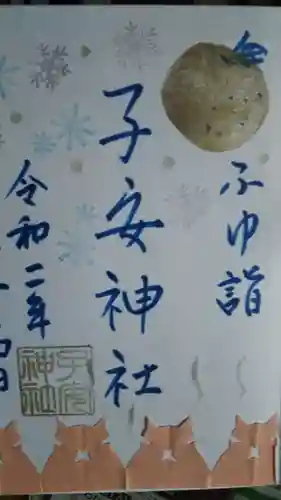 ふゆ詣
子安神社
令和二年
子安
神社